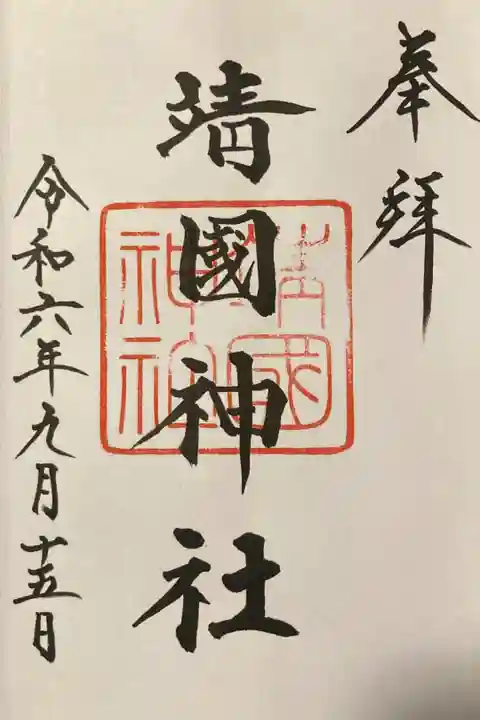 奉拜
靖國神社
靖國神社
令和六年九月十五日